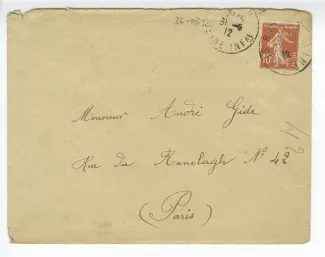 31 - 8
12
INFRE
10
Monsieur André Gide
Rue du Ranelagh N° 42
(Paris)
42